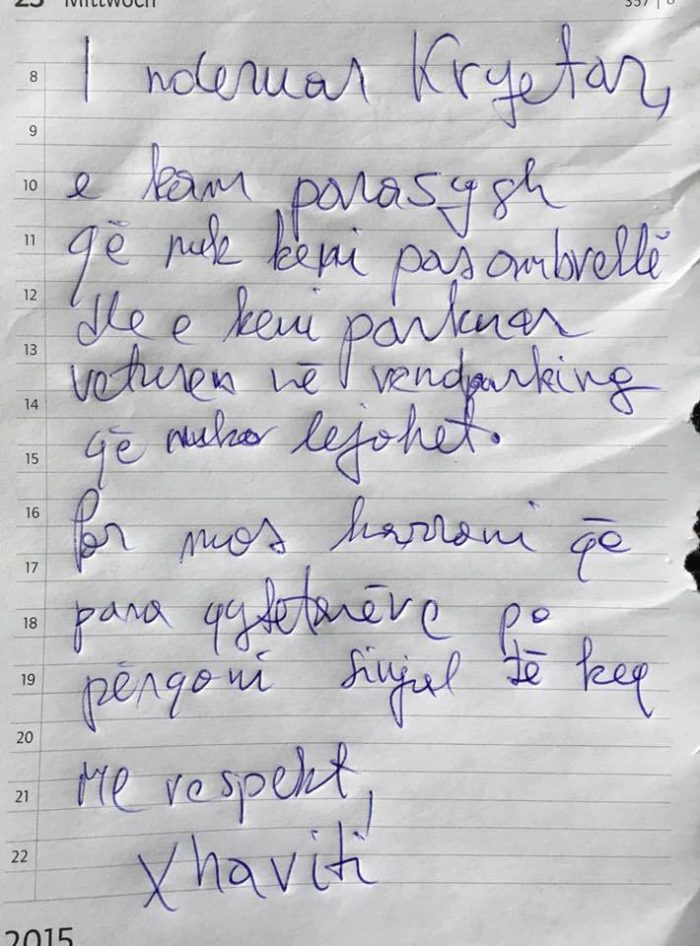 23 Mittwoch
8 I nderuar Kryetar,
9
10 e kam parasysh
11 që nuk keni pas ombrellë
12 dhe e keni parkuar
13 veturen në vendparking
14 që nuk lejohet.
15
16 Por mos harroni që
17
18 para qytetarëve po
19 përqoni sinjal të keq
20
21 Me respekt,
22 Xhaviti
2015